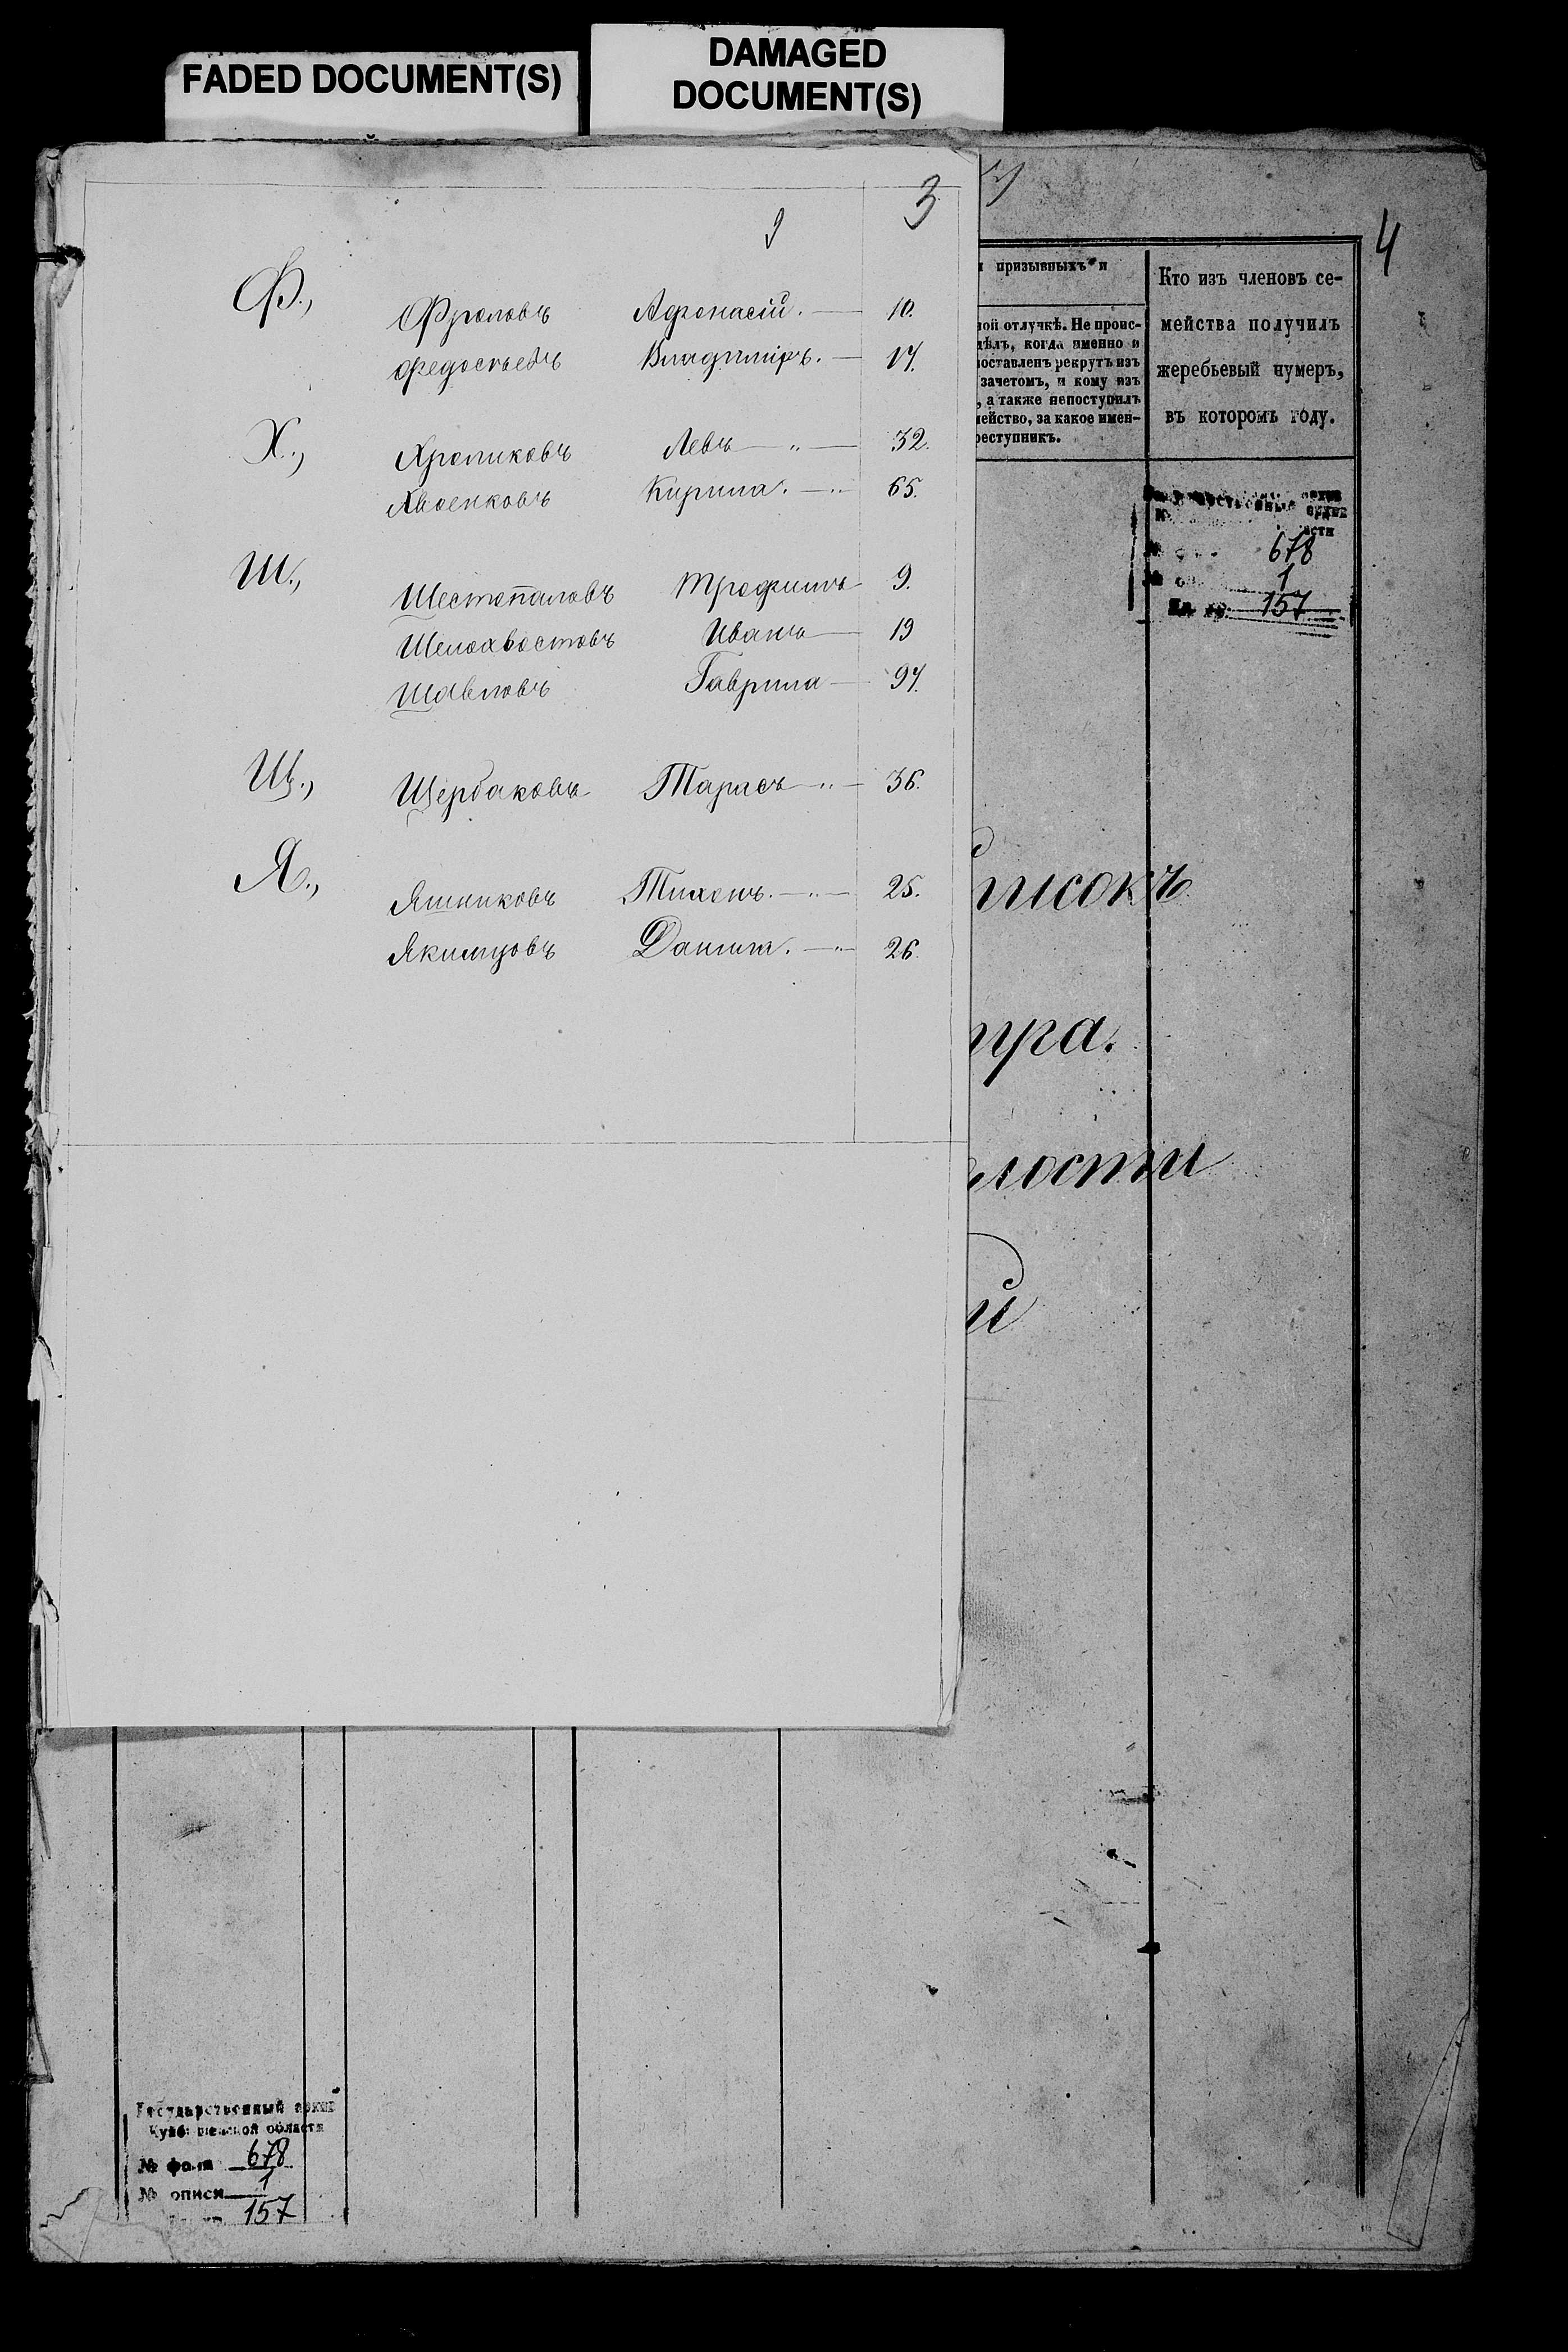 FADED DOCUMENT(S)
DAMAGED
DOCUMENT(S)
3
Ф.,
Фроловъ Афонасій. — 10.
Федосѣевъ Владиміръ. — 17.
Х.,
Хроликовъ Левъ — „ — 32.
Хвоенковъ Кирила. — „ 65.
Ш.,
Шестопаловъ Трофимъ 9.
Шелохвостовъ Иванъ — 19
Шавловъ Гаврила — 97.
Щ.,
Щербаковъ Тарасъ — „ — 36.
Я.,
Яшниковъ Тихонъ. — „ — 25.
Якимцовъ Данила. — „ — 26.
4
призывныхъ и
ной отлучкѣ. Не проис-
дѣлъ, когда именно и
поставленъ рекрутъ изъ
зачетомъ, и кому изъ
, а также непоступилъ
мейство, за какое имен-
реступникъ.
Кто изъ членовъ се-
мейства получилъ
жеребьевый нумеръ,
въ которомъ году.
678
1
157
писокъ
ира.
лости
й
Государственный архив
Куйбышевской области
№ фонда 678
№ описи 1
157